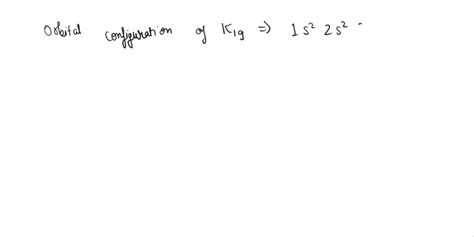 Orbital configuration of K₁₉ ⇒ 1s² 2s²